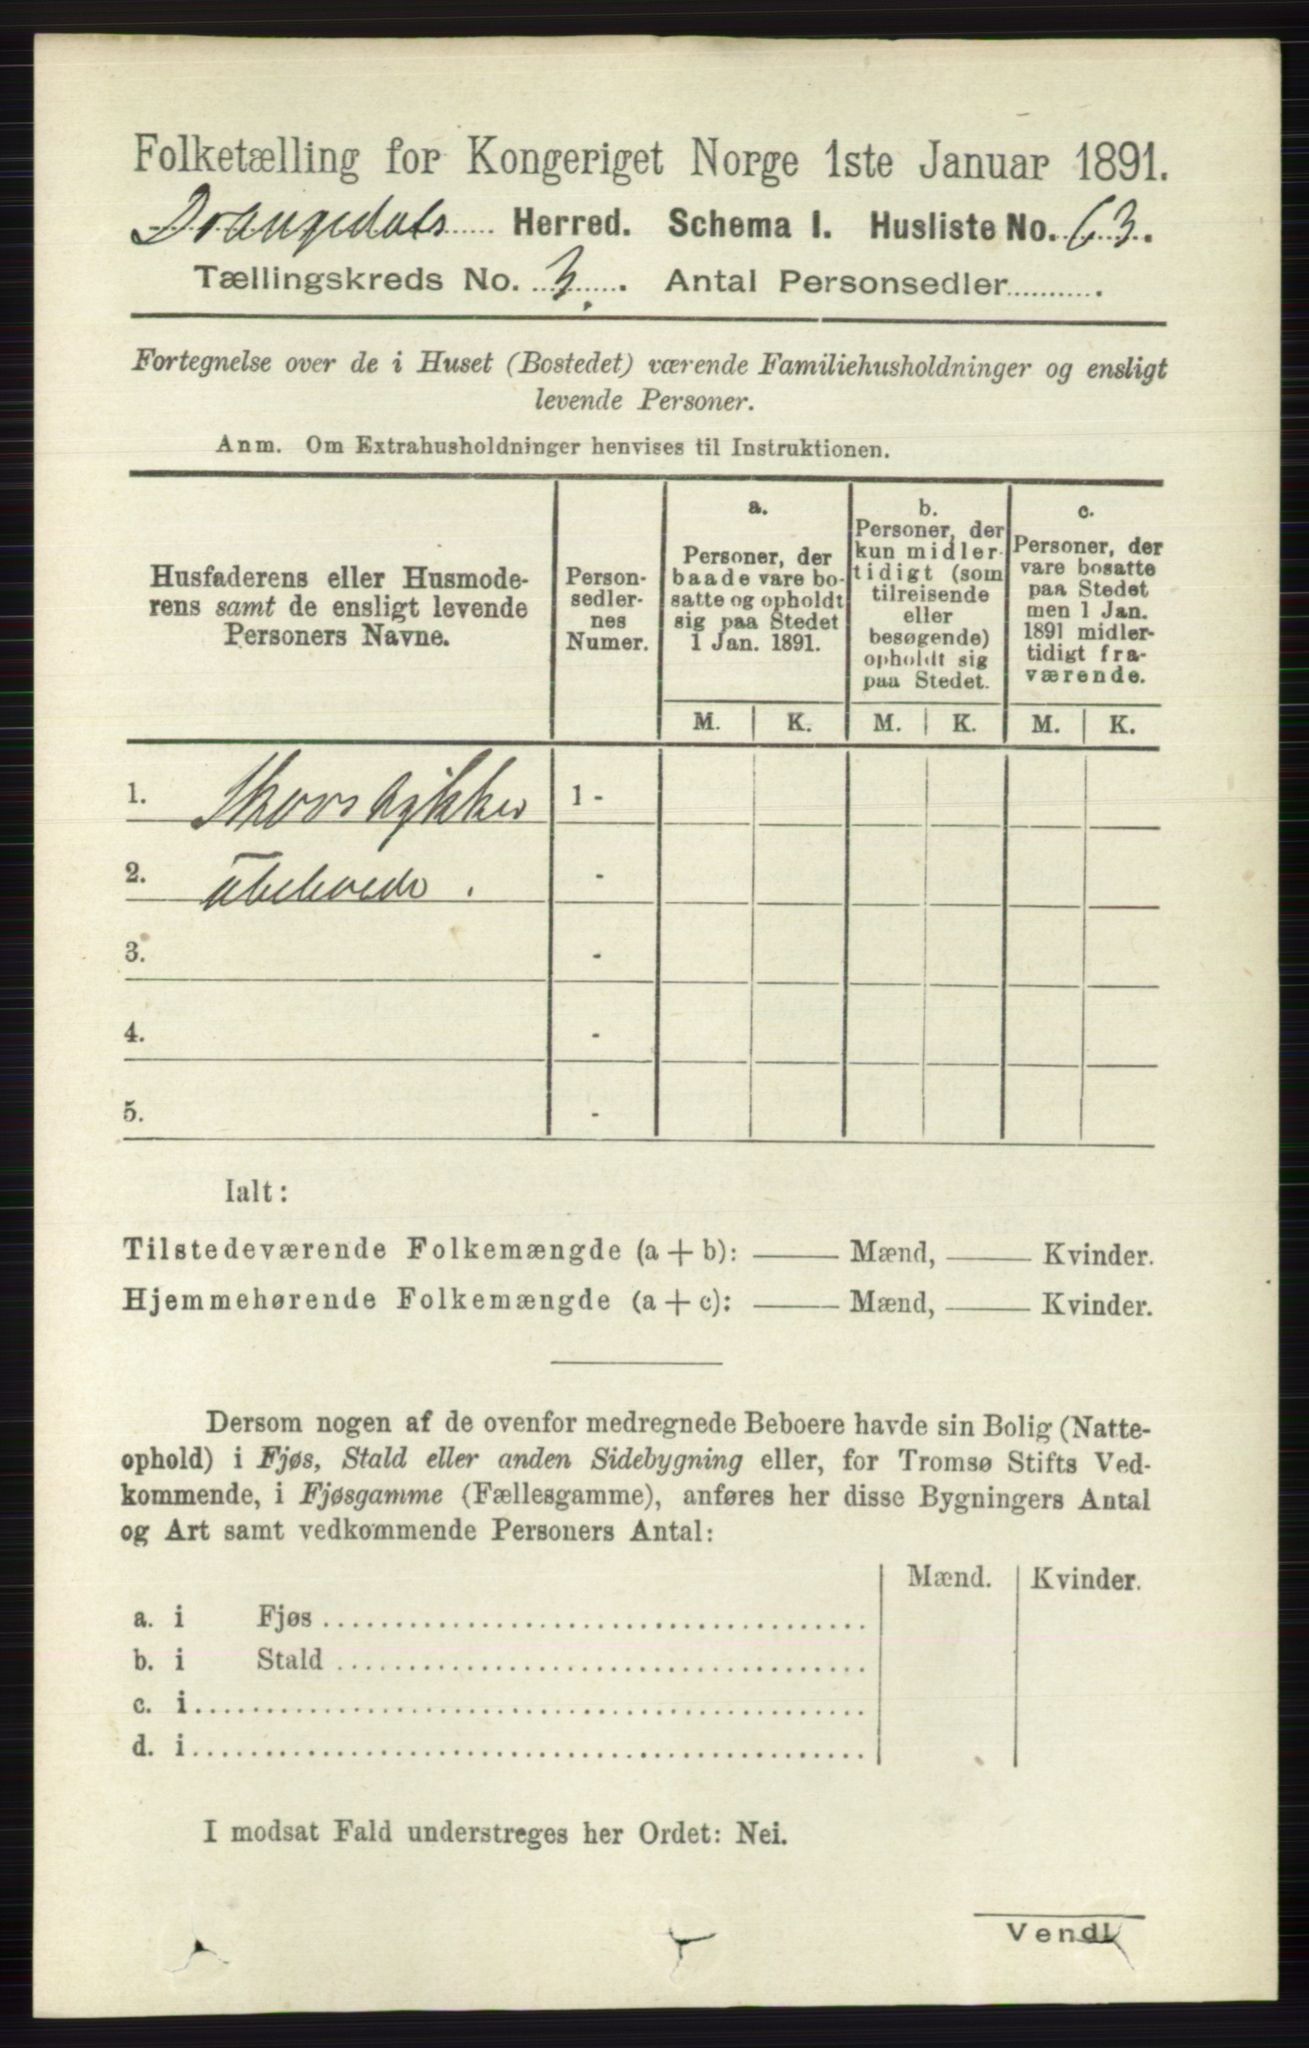 Folketælling for Kongeriget Norge 1ste Januar 1891.
Drangedals Herred. Schema I. Husliste No. 63.
Tællingskreds No. 3. Antal Personsedler
Fortegnelse over de i Huset (Bostedet) værende Familiehusholdninger og ensligt
levende Personer.
Anm. Om Extrahusholdninger henvises til Instruktionen.
Husfaderens eller Husmode-
rens samt de ensligt levende
Personers Navne.
Person-
sedler-
nes
Numer.
a.
Personer, der
baade vare bo-
satte og opholdt
sig paa Stedet
1 Jan. 1891.
b.
Personer, der
kun midler-
tidigt (som
tilreisende
eller
besøgende)
opholdt sig
paa Stedet.
c.
Personer, der
vare bosatte
paa Stedet
men 1 Jan.
1891 midler-
tidigt fra-
værende.
M. K. M. K. M. K.
1. 1 -
2. ubeboede. -
3. -
4. -
5. -
Ialt:
Tilstedeværende Folkemængde (a + b): —— Mænd, —— Kvinder.
Hjemmehørende Folkemængde (a + c): —— Mænd, —— Kvinder.
Dersom nogen af de ovenfor medregnede Beboere havde sin Bolig (Natte-
ophold) i Fjøs, Stald eller anden Sidebygning eller, for Tromsø Stifts Ved-
kommende, i Fjøsgamme (Fællesgamme), anføres her disse Bygningers Antal
og Art samt vedkommende Personers Antal:
Mænd. Kvinder.
a. i Fjøs
b. i Stald
c. i
d. i
I modsat Fald understreges her Ordet: Nei.
Vend!